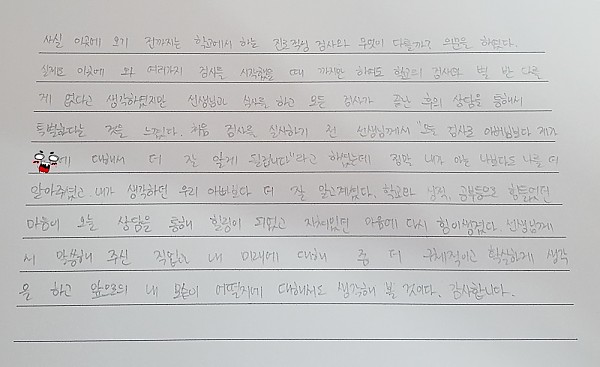 사실 이곳에 오기 전까지는 학교에서 하는 진로적성 검사와 무엇이 다를까? 의문을 하였다.
실제로 이곳에 와 여러가지 검사를 시작했을 때 까지만 하여도 학교의 검사와 별 반 다를
게 없다고 생각하였지만 선생님과 식사를 하고 모든 검사가 끝난 후의 상담을 통해서
특별하다는 것을 느꼈다. 처음 검사를 실시하기 전 선생님께서 "모든 검사로 아버님보다 제가
에 대해서 더 잘 알게 됩니다"라고 하셨는데 정말 내가 아는 나보다도 나를 더
알아주셨고 내가 생각하던 우리 아빠보다 더 잘 알고계셨다. 학교와 성적, 공부등으로 힘들었던
마음이 오늘 상담을 통해 힐링이 되었고 지쳐있던 마음에 다시 힘이생겼다. 선생님께
서 말씀해 주신 직업과 내 미래에 대해 좀 더 구체적이고 확실하게 생각
을 하고 앞으로의 내 모습이 어떨지에 대해서도 생각해 볼 것이다. 감사합니다.